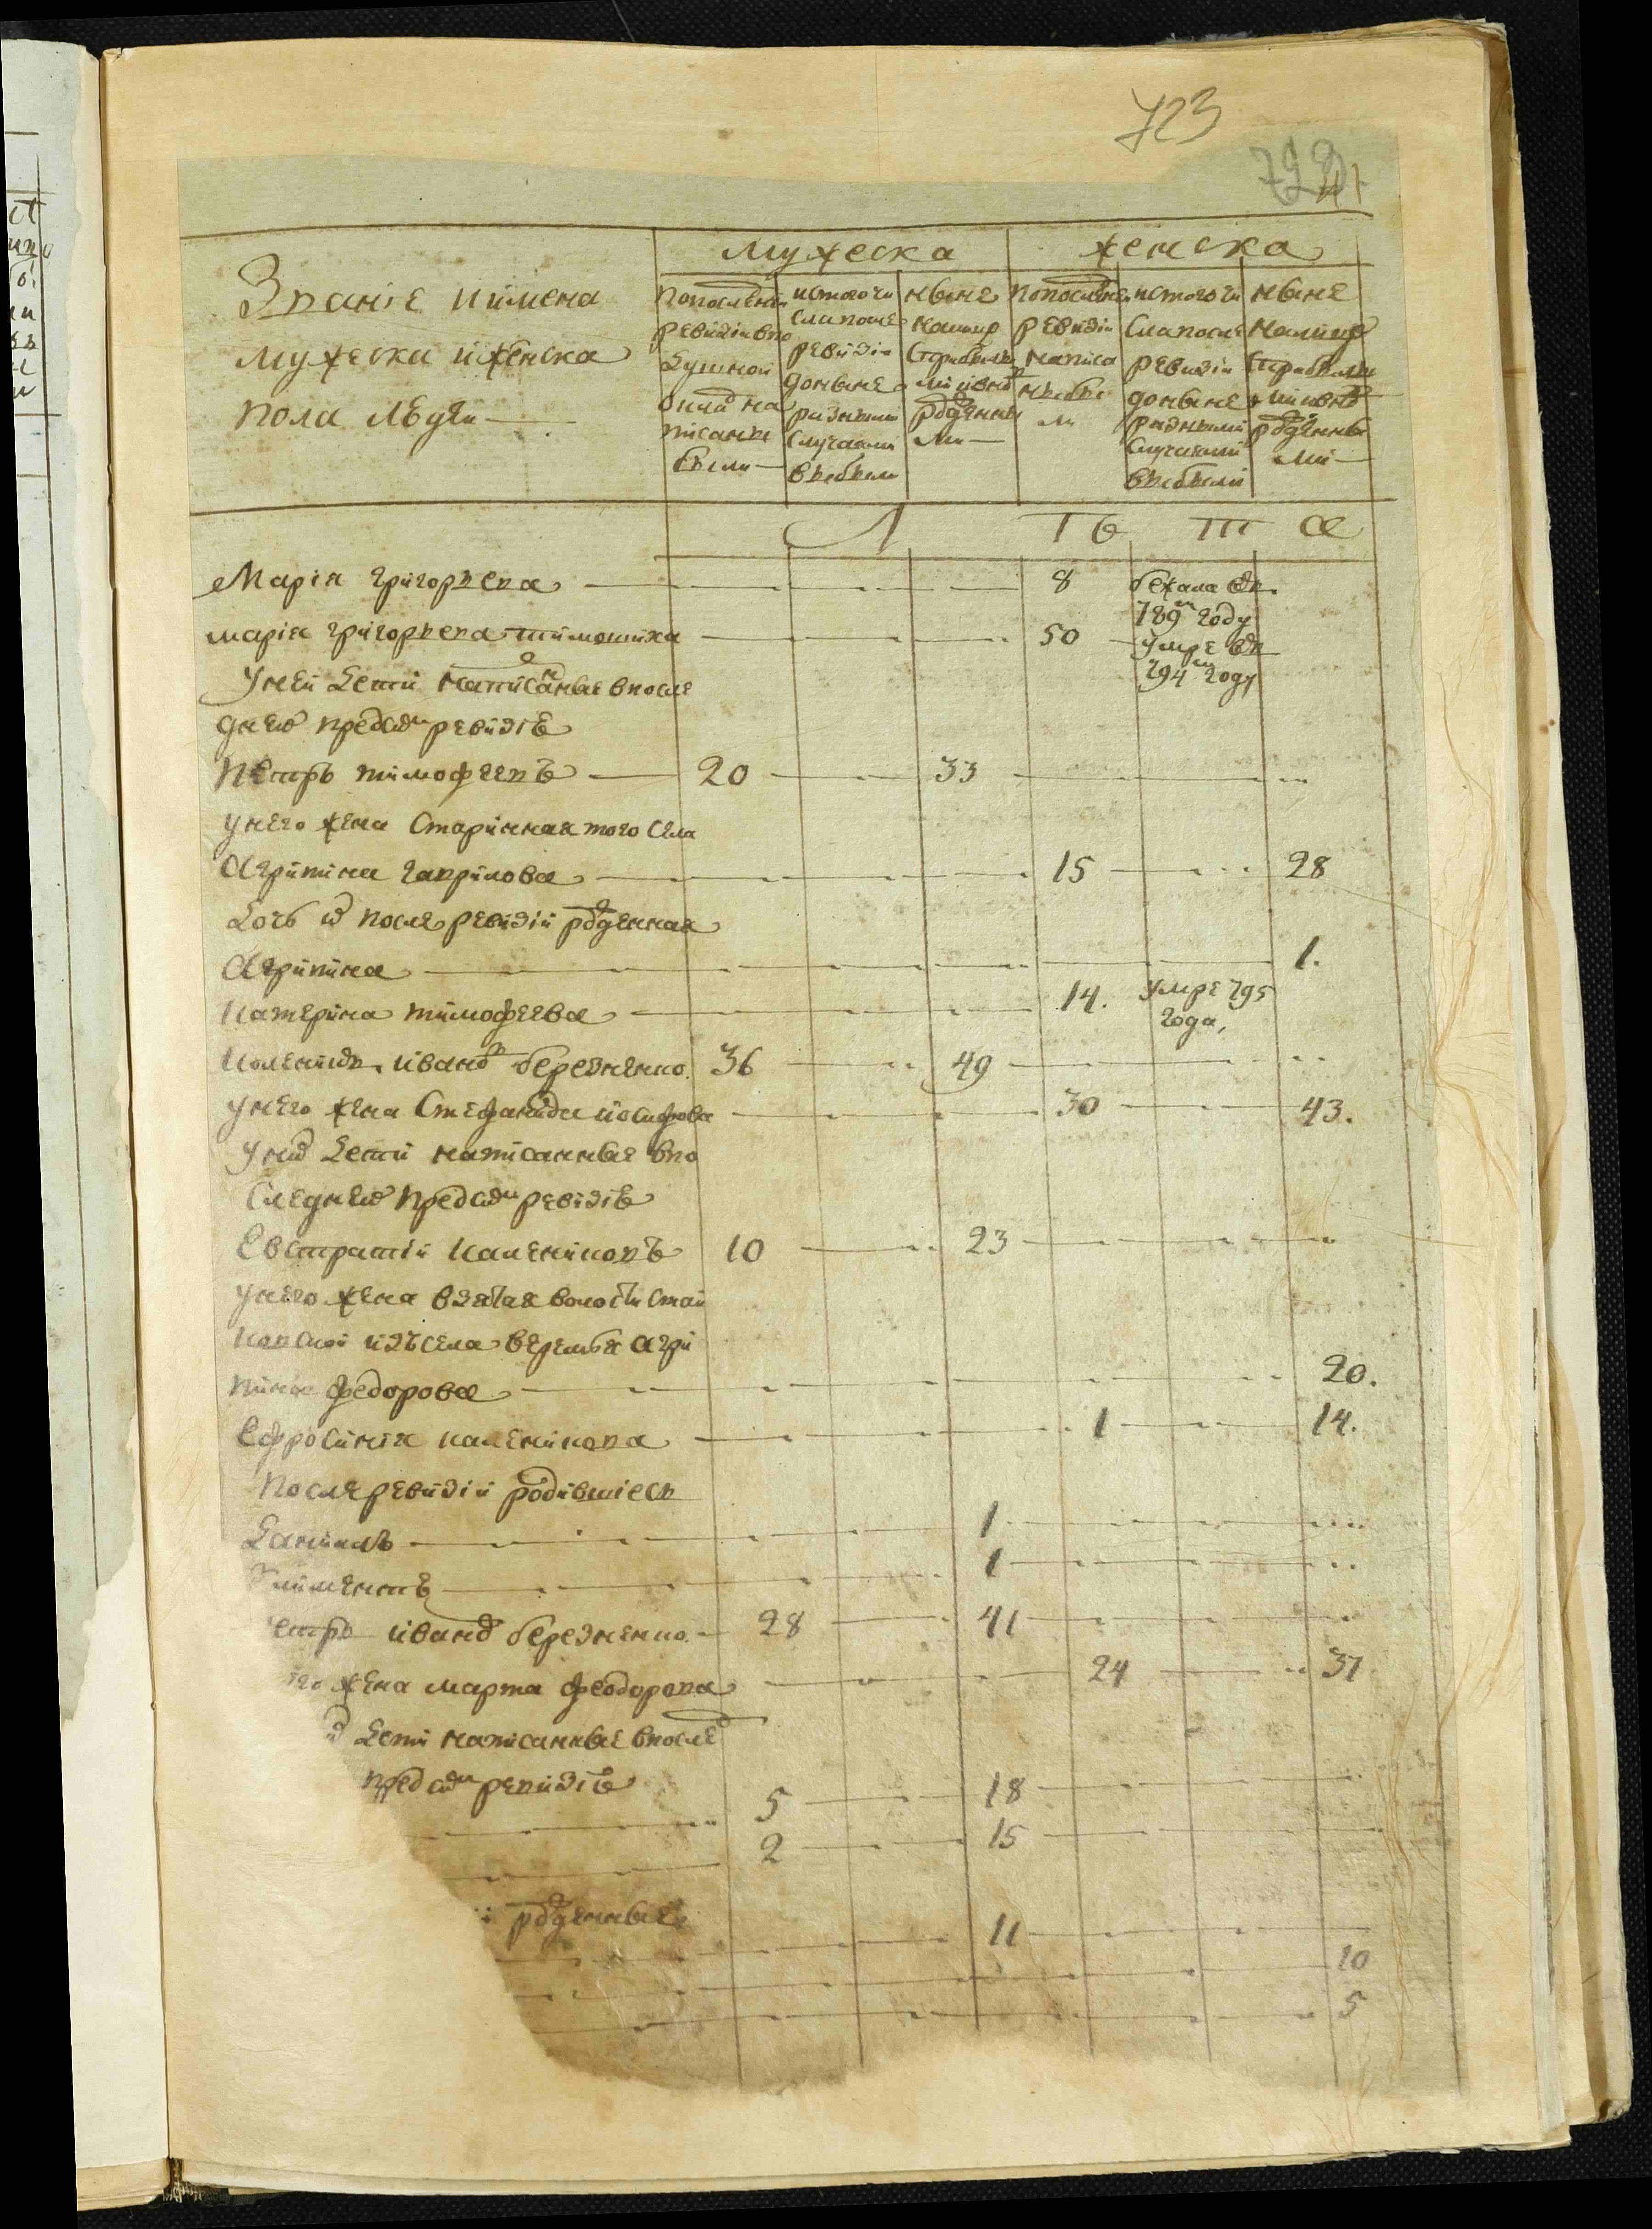 723
Званіе и имена
мужеска и женска
пола людей
мужеска
женска
по последней ревизіи в подушной оклад написанные были
ис того числа после ревизіи до ныне разными случаями выбыли
ныне на лицо
по последней ревизіи написаны были
ис того числа после ревизіи до ныне разными случаями выбыли
ныне на лицо
Л Ѣ Т А
Марія григорьева 8 бежала въ 789м году
марія григорьева тимошиха 50 умре въ 794м году
У ней дети написаные в после
дней пред сим ревизіѣ
Петръ тимофеевъ 20 33
у него жена старинная того села
Агрипина гаврилова 15 28
дочь их после ревизіи рожденная
Агрипина 1.
Катерина тимофеева 14. умре 795 года,
иванов березненко. 36 49
у него жена Стефанида иосифова 30 43.
У них дети написанные в по
следней пред сим ревизіѣ
Евстратій каленіковъ 10 23
у него жена взятая волости стай
ковской изъ села веремья агри
пина федорова 20.
Ефросинія каленикова 1 14.
После ревизіи родившіесь
Данилъ 1
Климентъ 1
етръ иванов березненко. 28 41
его жена марта феодорова 24 37
х дети написанные в после
пред сим ревизіѣ
5 18
2 15
рожденные
11
10
5